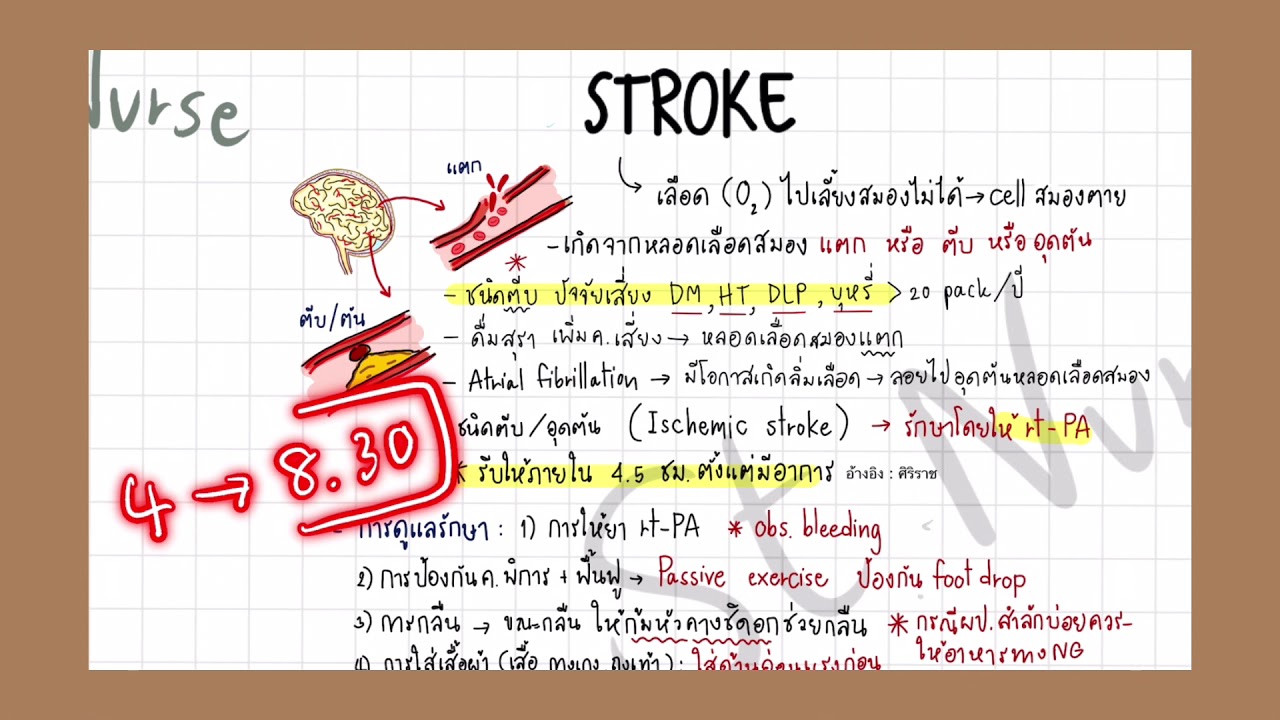 Nurse
STROKE
แตก
เลือด (O₂) ไปเลี้ยงสมองไม่ได้ → cell สมองตาย
- เกิดจากหลอดเลือดสมอง แตก หรือ ตีบ หรือ อุดตัน
*
- ชนิดตีบ ปัจจัยเสี่ยง DM, HT, DLP, บุหรี่ > 20 pack/ปี
ตีบ/ตัน
- ดื่มสุรา เพิ่มค.เสี่ยง → หลอดเลือดสมองแตก
- Atrial fibrillation → มีโอกาสเกิดลิ่มเลือด → ลอยไปอุดตันหลอดเลือดสมอง
ชนิดตีบ/อุดตัน (Ischemic stroke) → รักษาโดยให้ rt-PA
* รีบให้ภายใน 4.5 ชม. ตั้งแต่มีอาการ อ้างอิง : ศิริราช
4 → 8.30
- การดูแลรักษา : 1) การให้ยา rt-PA * obs. bleeding
2) การป้องกันค.พิการ + ฟื้นฟู → Passive exercise ป้องกัน foot drop
3) การกลืน → ขณะกลืน ให้ก้มหัวคางชิดอกช่วยกลืน * กรณีผป.สำลักบ่อยควร-
ให้อาหารทาง NG
4) การใส่เสื้อผ้า (เสื้อ กางเกง ถุงเท้า) : ใส่ด้านอ่อนแรงก่อน
St. Nur